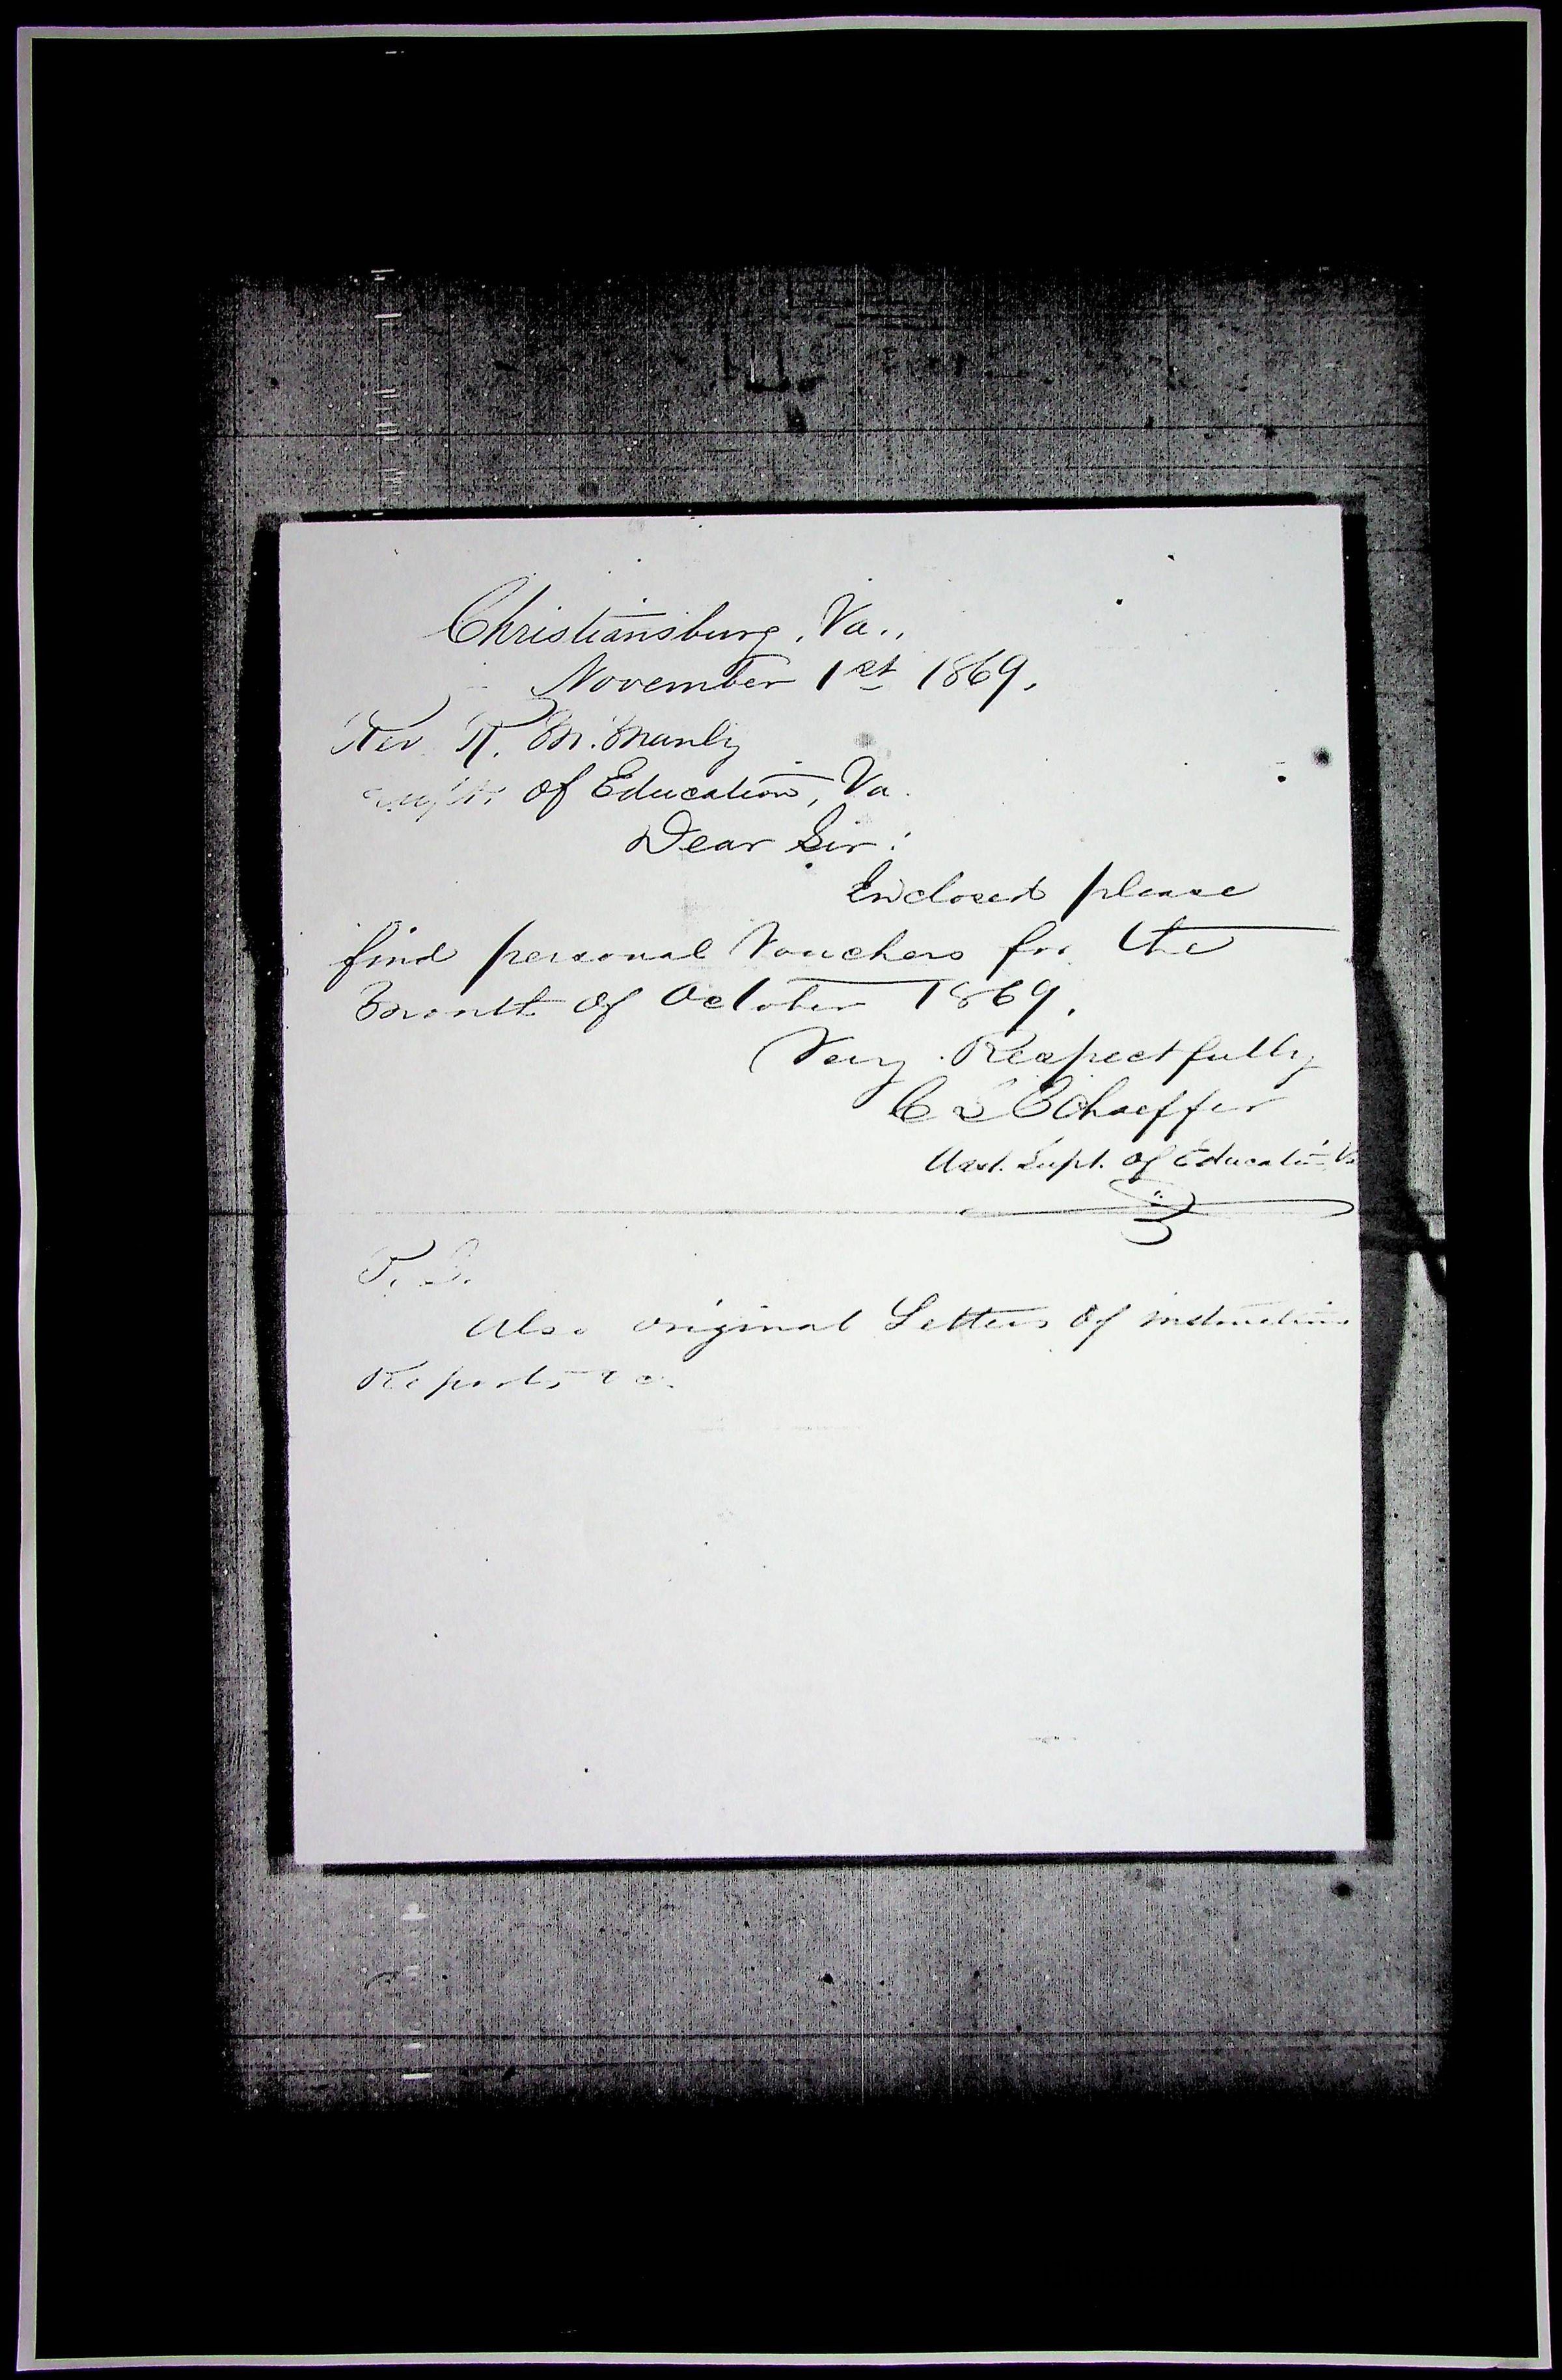 Christiansburg, Va.,
November 1st 1869.
Rev R. M. Manly
Supt. of Education, Va.
Dear Sir:
Enclosed please
find personal Vouchers for the
Month of October 1869.
Very Respectfully
C S Schaeffer
Asst. Supt. of Education Va
P. S.
Also original Letters of instructions
Reports &c.